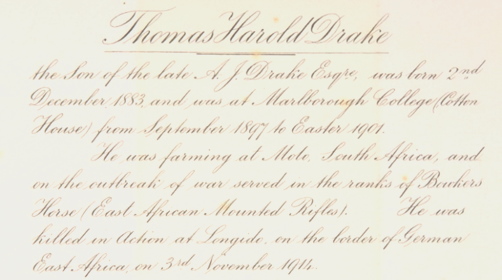 Thomas Harold Drake
the Son of the late A. J Drake Esqre, was born 2nd
December 1883, and was at Marlborough College (Cotton
House) from September 1897 to Easter 1901.
He was farming at Molo, South Africa, and
on the outbreak of war served in the ranks of Bowkers
Horse (East African Mounted Rifles). He was
killed in Action at Longido, on the border of German
East Africa, on 3rd November 1914.